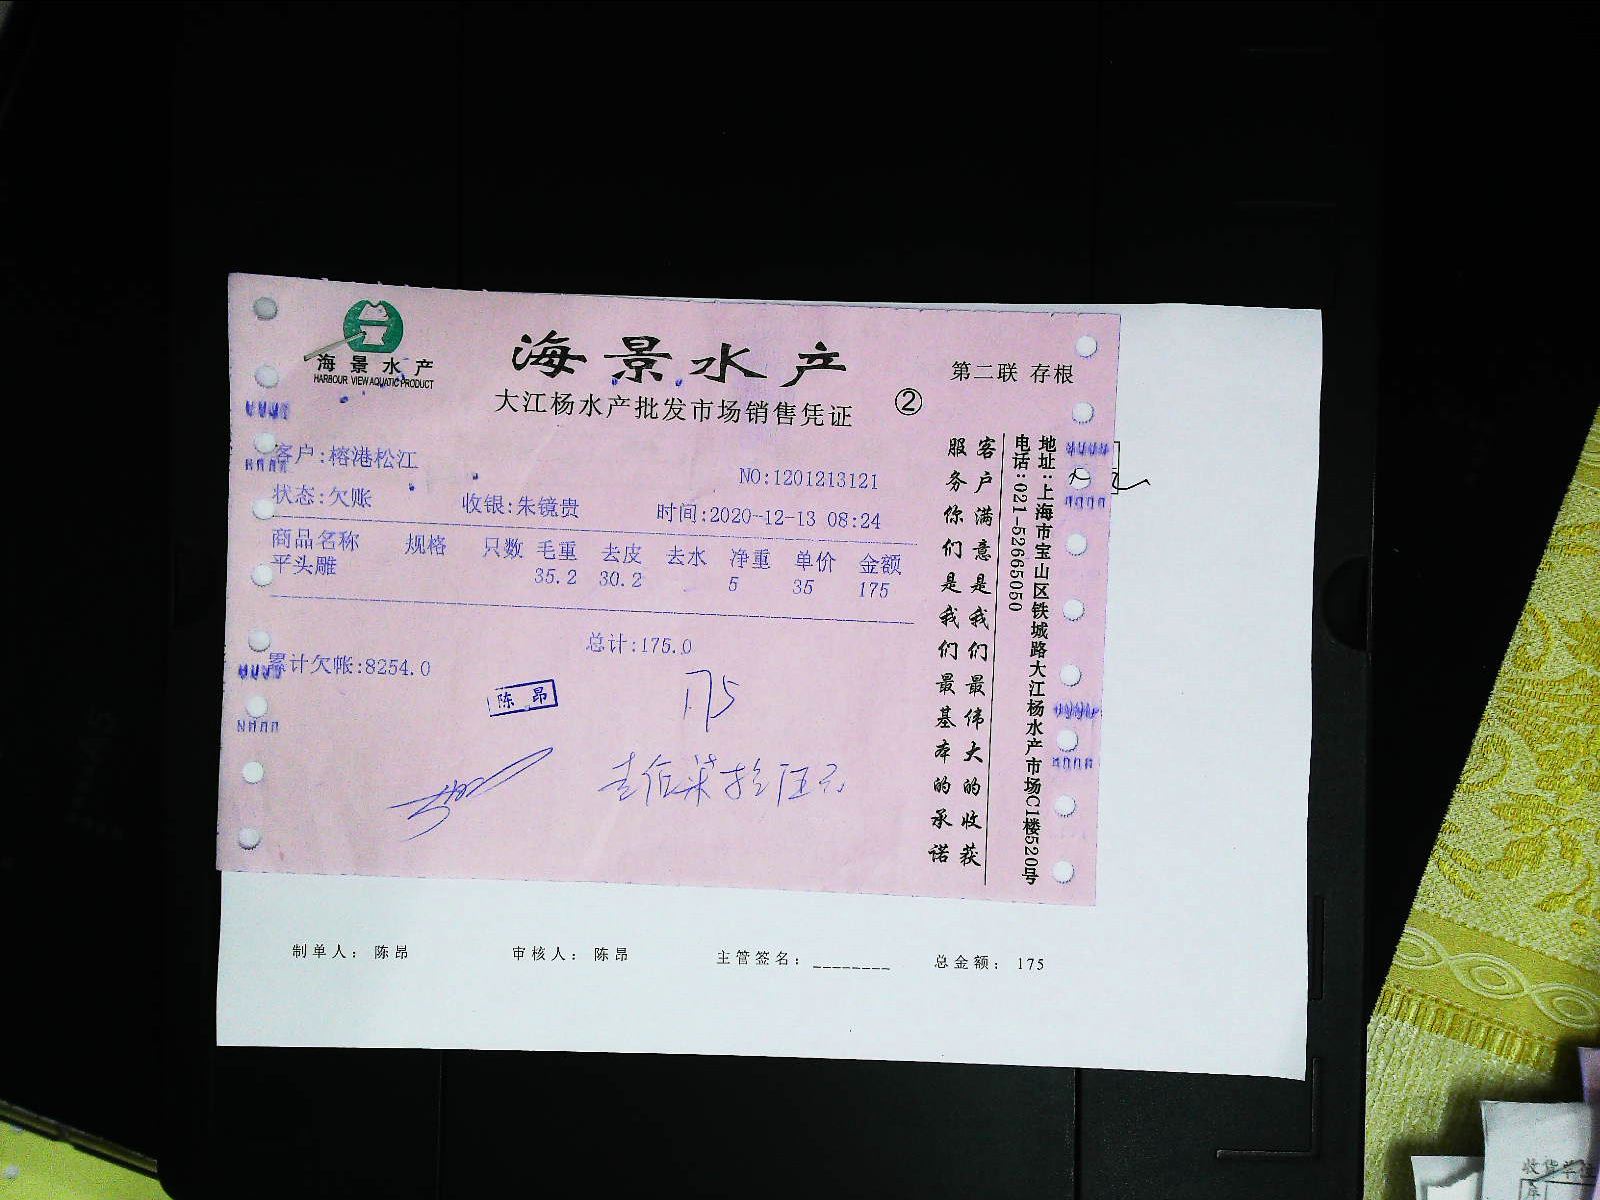 海景水产
HARBOUR VIEW AQUATIC PRODUCT
海景水产
大江杨水产批发市场销售凭证
②
第二联 存根
客户:榕港松江
NO:1201213121
状态:欠账 收银:朱镜贵 时间:2020-12-13 08:24
商品名称 规格 只数 毛重 去皮 去水 净重 单价 金额
平头雕 35.2 30.2 5 35 175
总计:175.0
累计欠帐:8254.0
陈昂
175
壹佰柒拾伍元
客户满意是我们最伟大的收获
服务你们是我们最基本的承诺
地址:上海市宝山区铁城路大江杨水产市场C1楼520号
电话:021-52665050
制单人: 陈昂 审核人: 陈昂 主管签名:________ 总金额: 175
收货单位